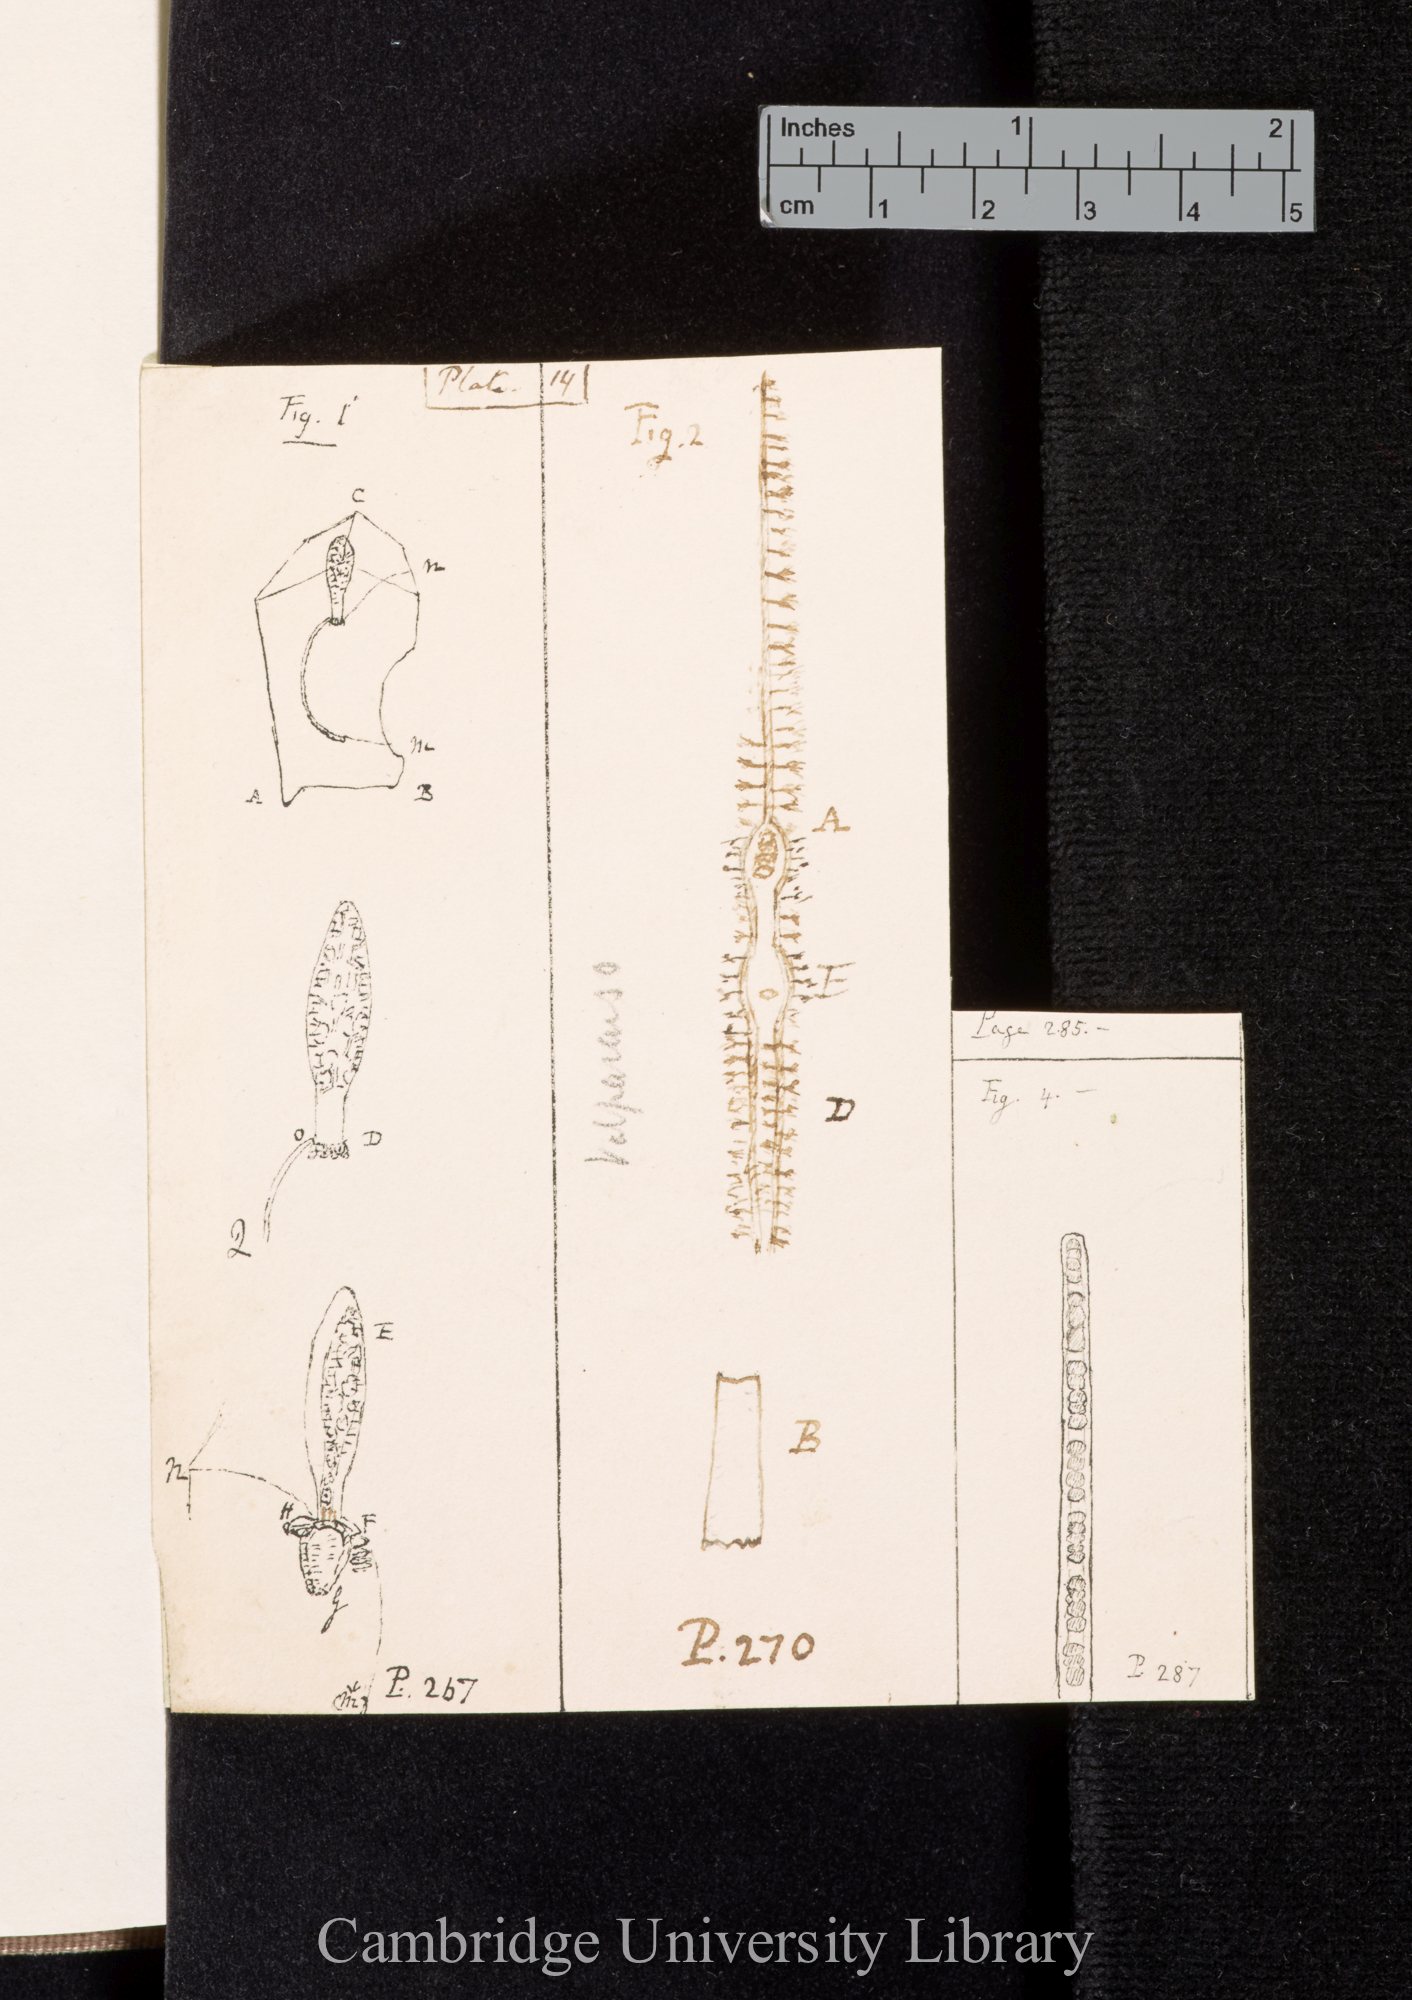 Inches 1 2
cm 1 2 3 4 5
Plate. 14
Fig. 1
C
n
m
A B
O D
Q
E
n
H F
G
P. 267
Fig. 2
A
E
Valparaiso
D
B
P. 270
Page 285.-
Fig. 4. -
P 287
Cambridge University Library